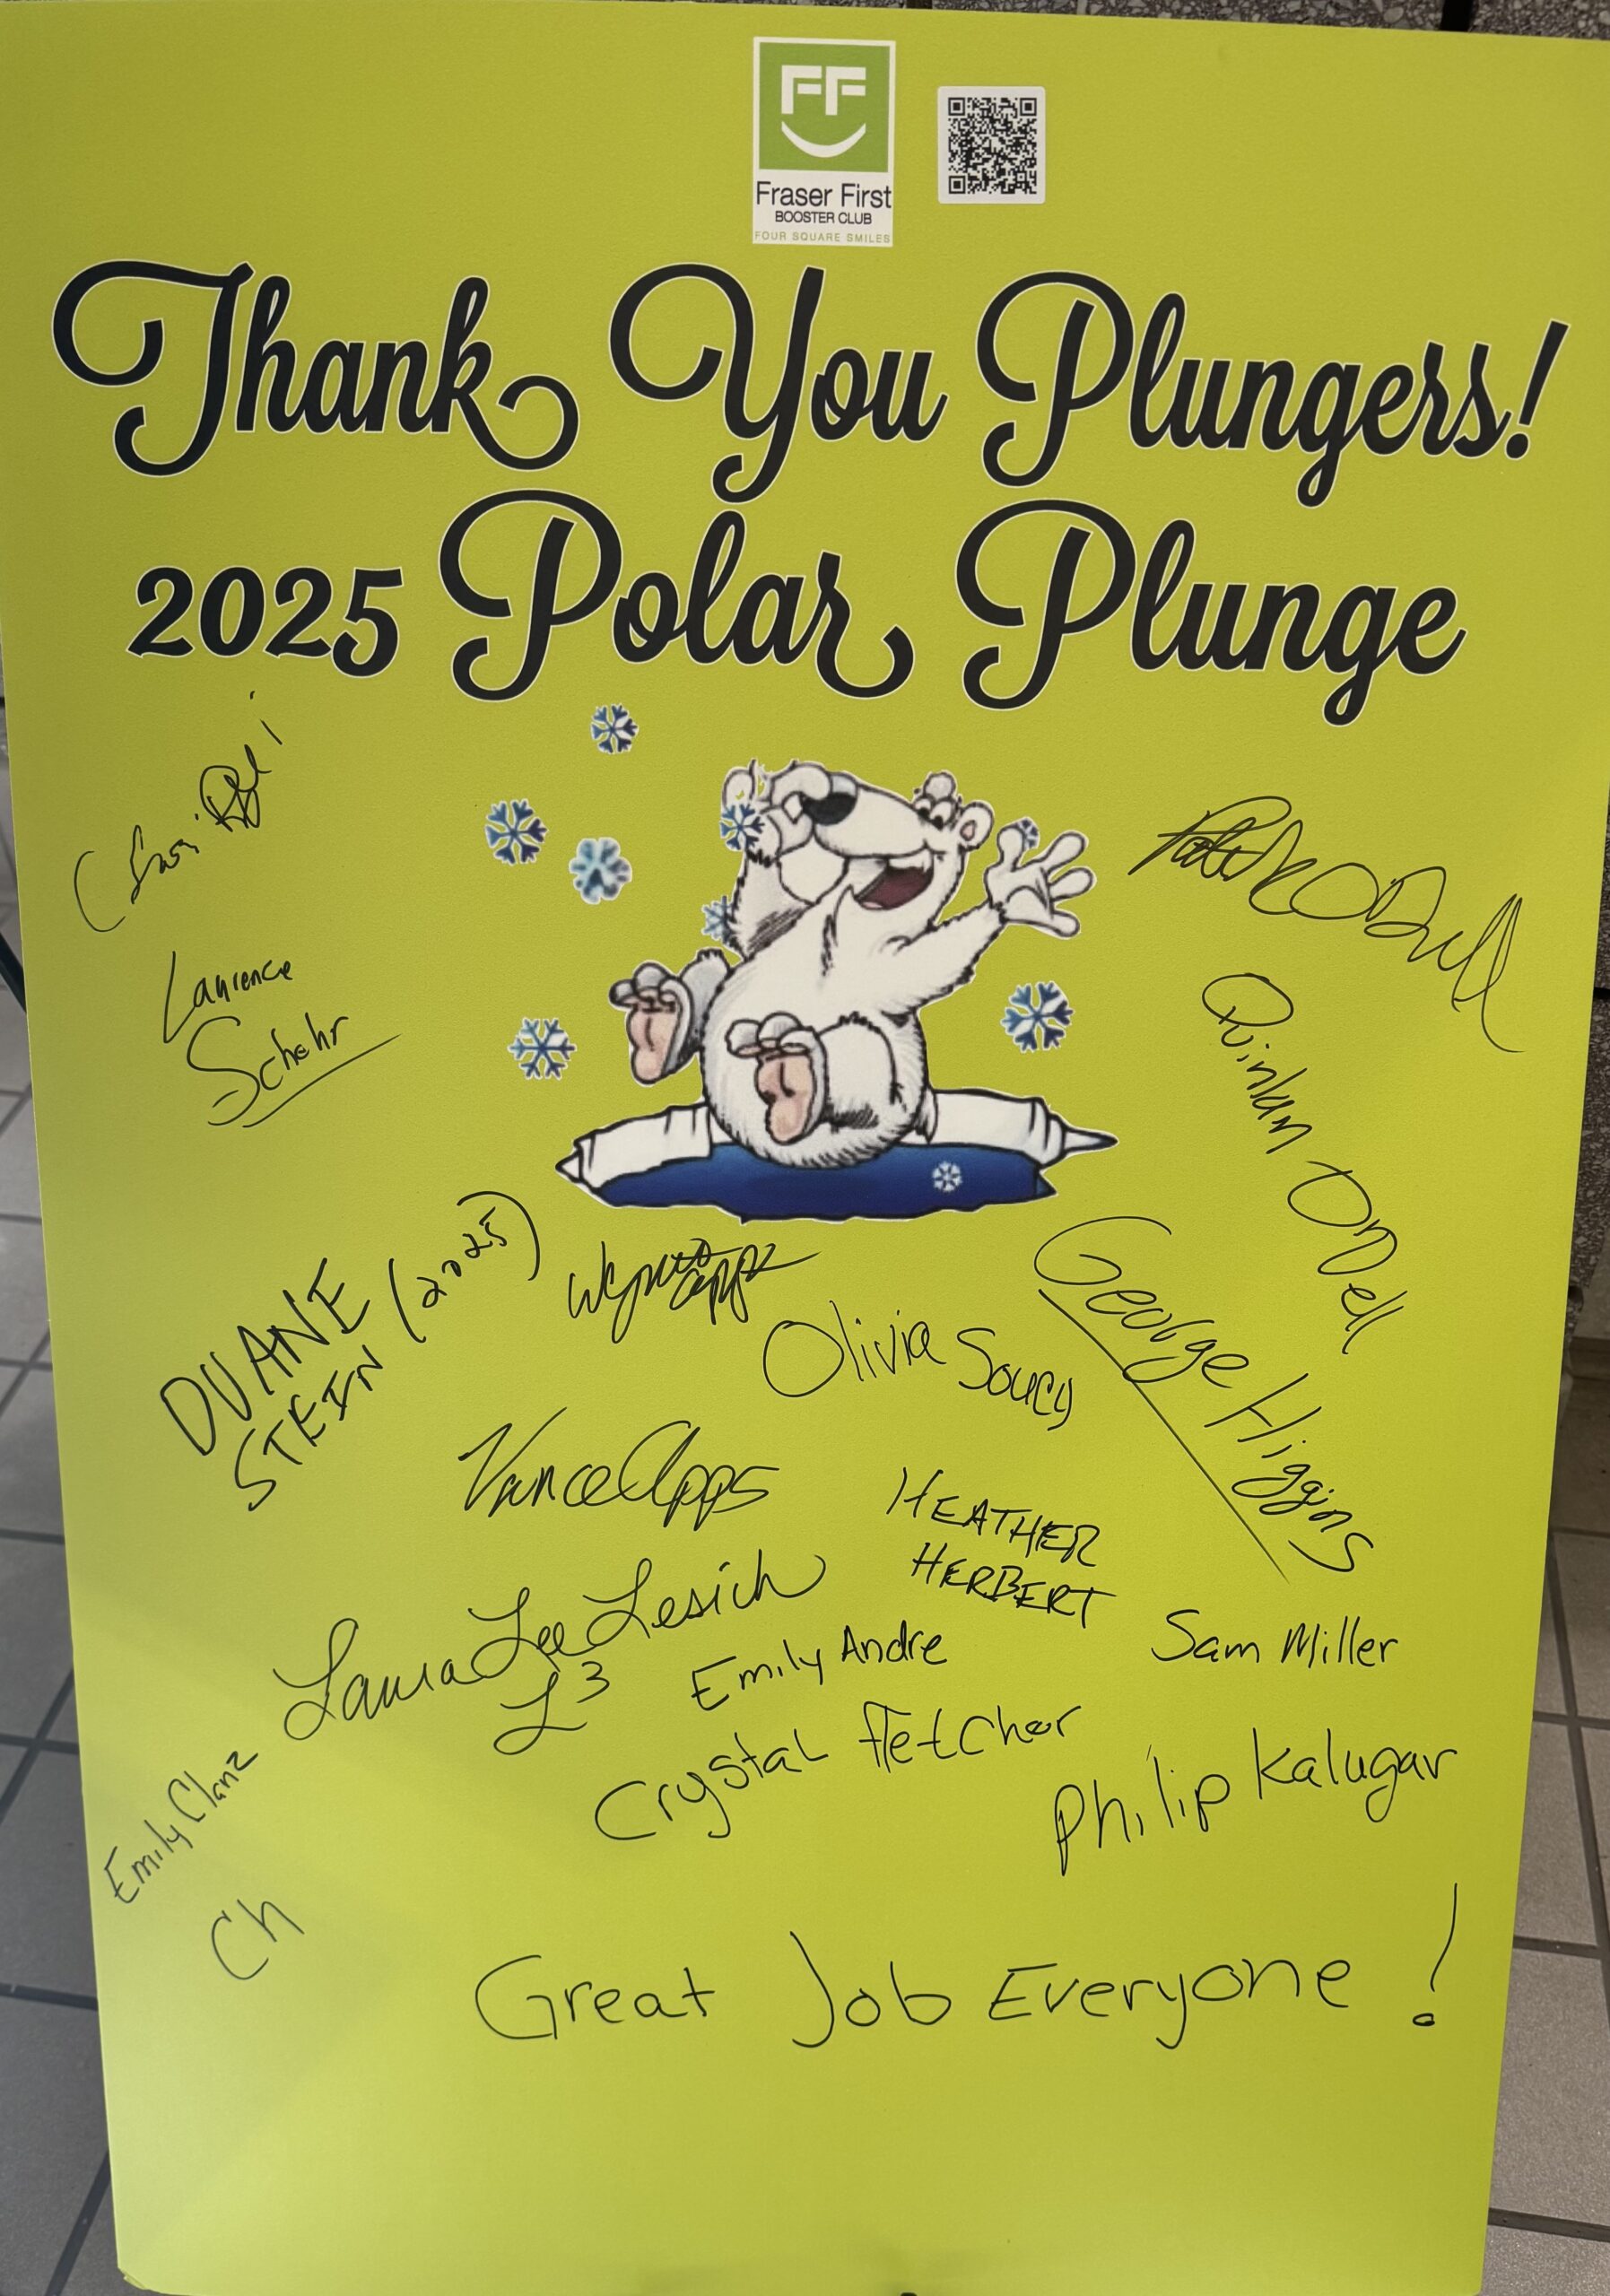 FF
Fraser First
BOOSTER CLUB
FOUR SQUARE SMILES
Thank You Plungers!
2025 Polar Plunge
Laurence
Schehr
Quinlan ODell
DUANE
STEIN (2025)
Olivia Soucy
George Higgins
Vance Apps
HEATHER
HERBERT
Laura Lee Lesich
L3
Emily Andre
Sam Miller
Crystal Fletcher
Philip Kalugar
Emily Clanz
Ch
Great Job Everyone!